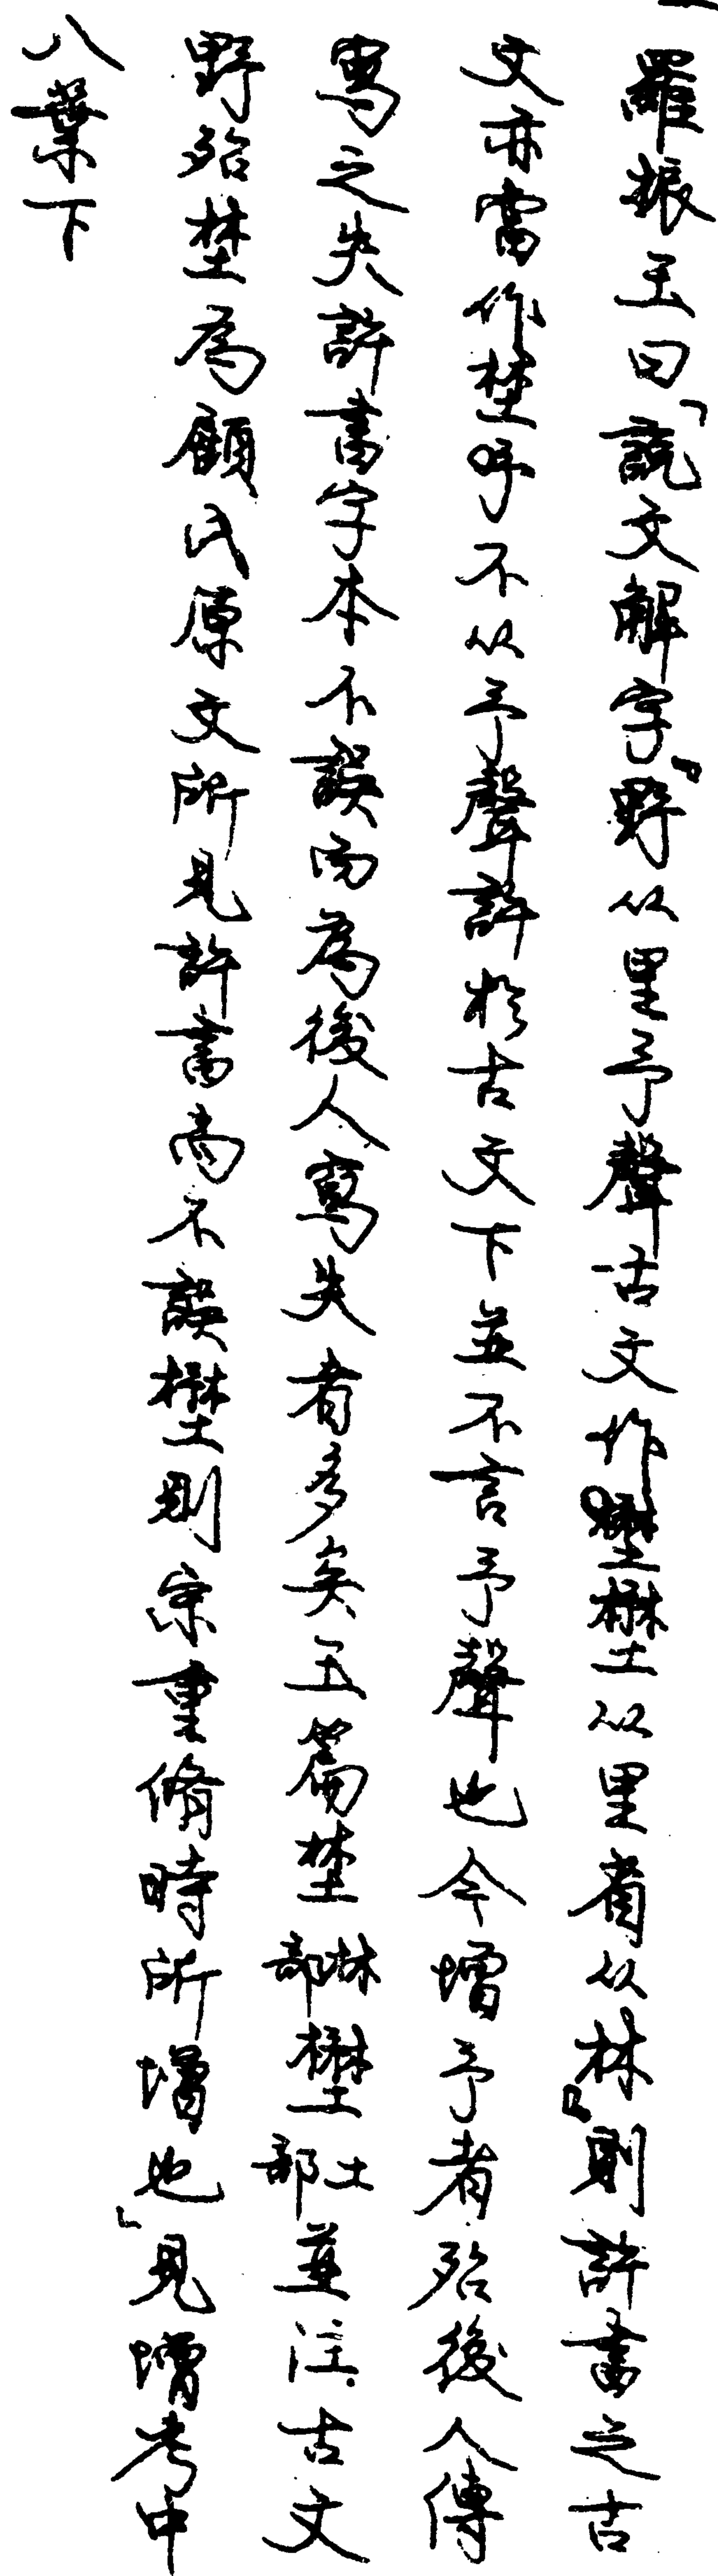 羅振玉曰「說文解字『野从里予聲古文作壄壄从里省从林』則許書之古
文亦當作埜乎不从予聲許於古文下並不言予聲也今增予者殆後人傳
寫之失許書字本不誤而為後人寫失者多矣玉篇埜林部壄土部並注古文
野殆埜為顧氏原文所見許書尚不誤壄則宋重脩時所增也」見增考中
八葉下